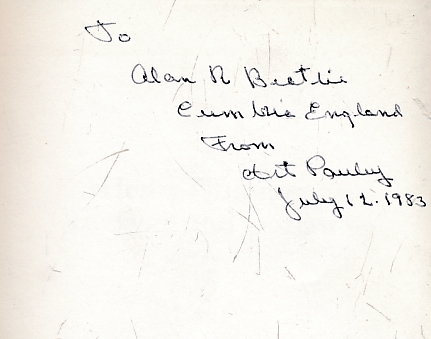 To
Alan R Beattie
Cumbria England
From
Art Pauley
July 12. 1983